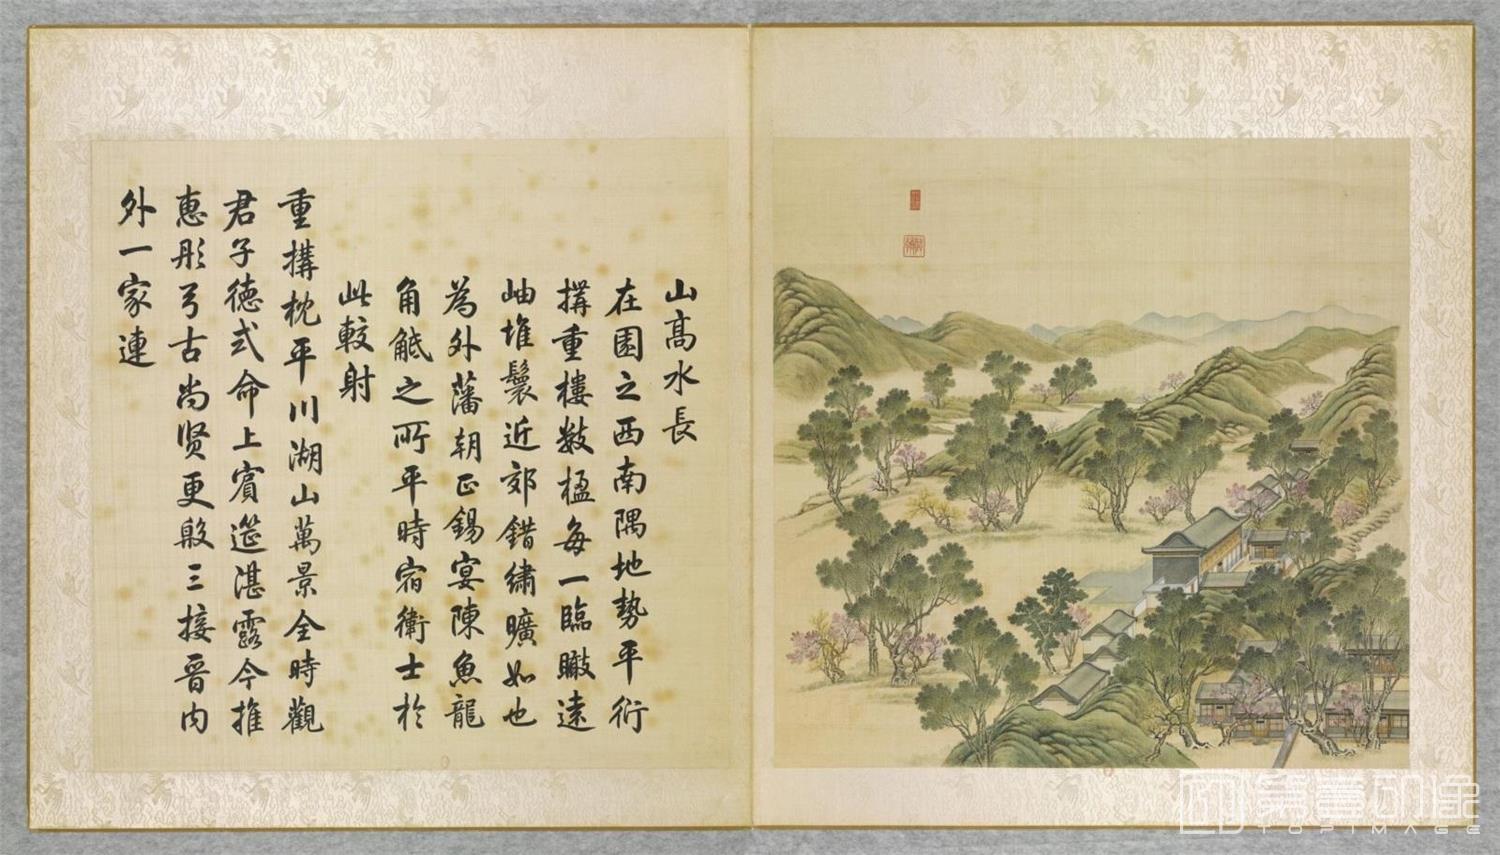 山高水長
在園之西南隅地勢平衍
搆重樓數楹每一臨瞰遠
岫堆鬟近郊錯繡曠如也
為外藩朝正錫宴陳魚龍
角觝之所平時宿衛士於
此較射
重搆枕平川湖山萬景全時觀
君子德式命上賓筵湛露今推
惠彤弓古尚賢更殷三接晉內
外一家連
第壹印像
TOPIMAGE